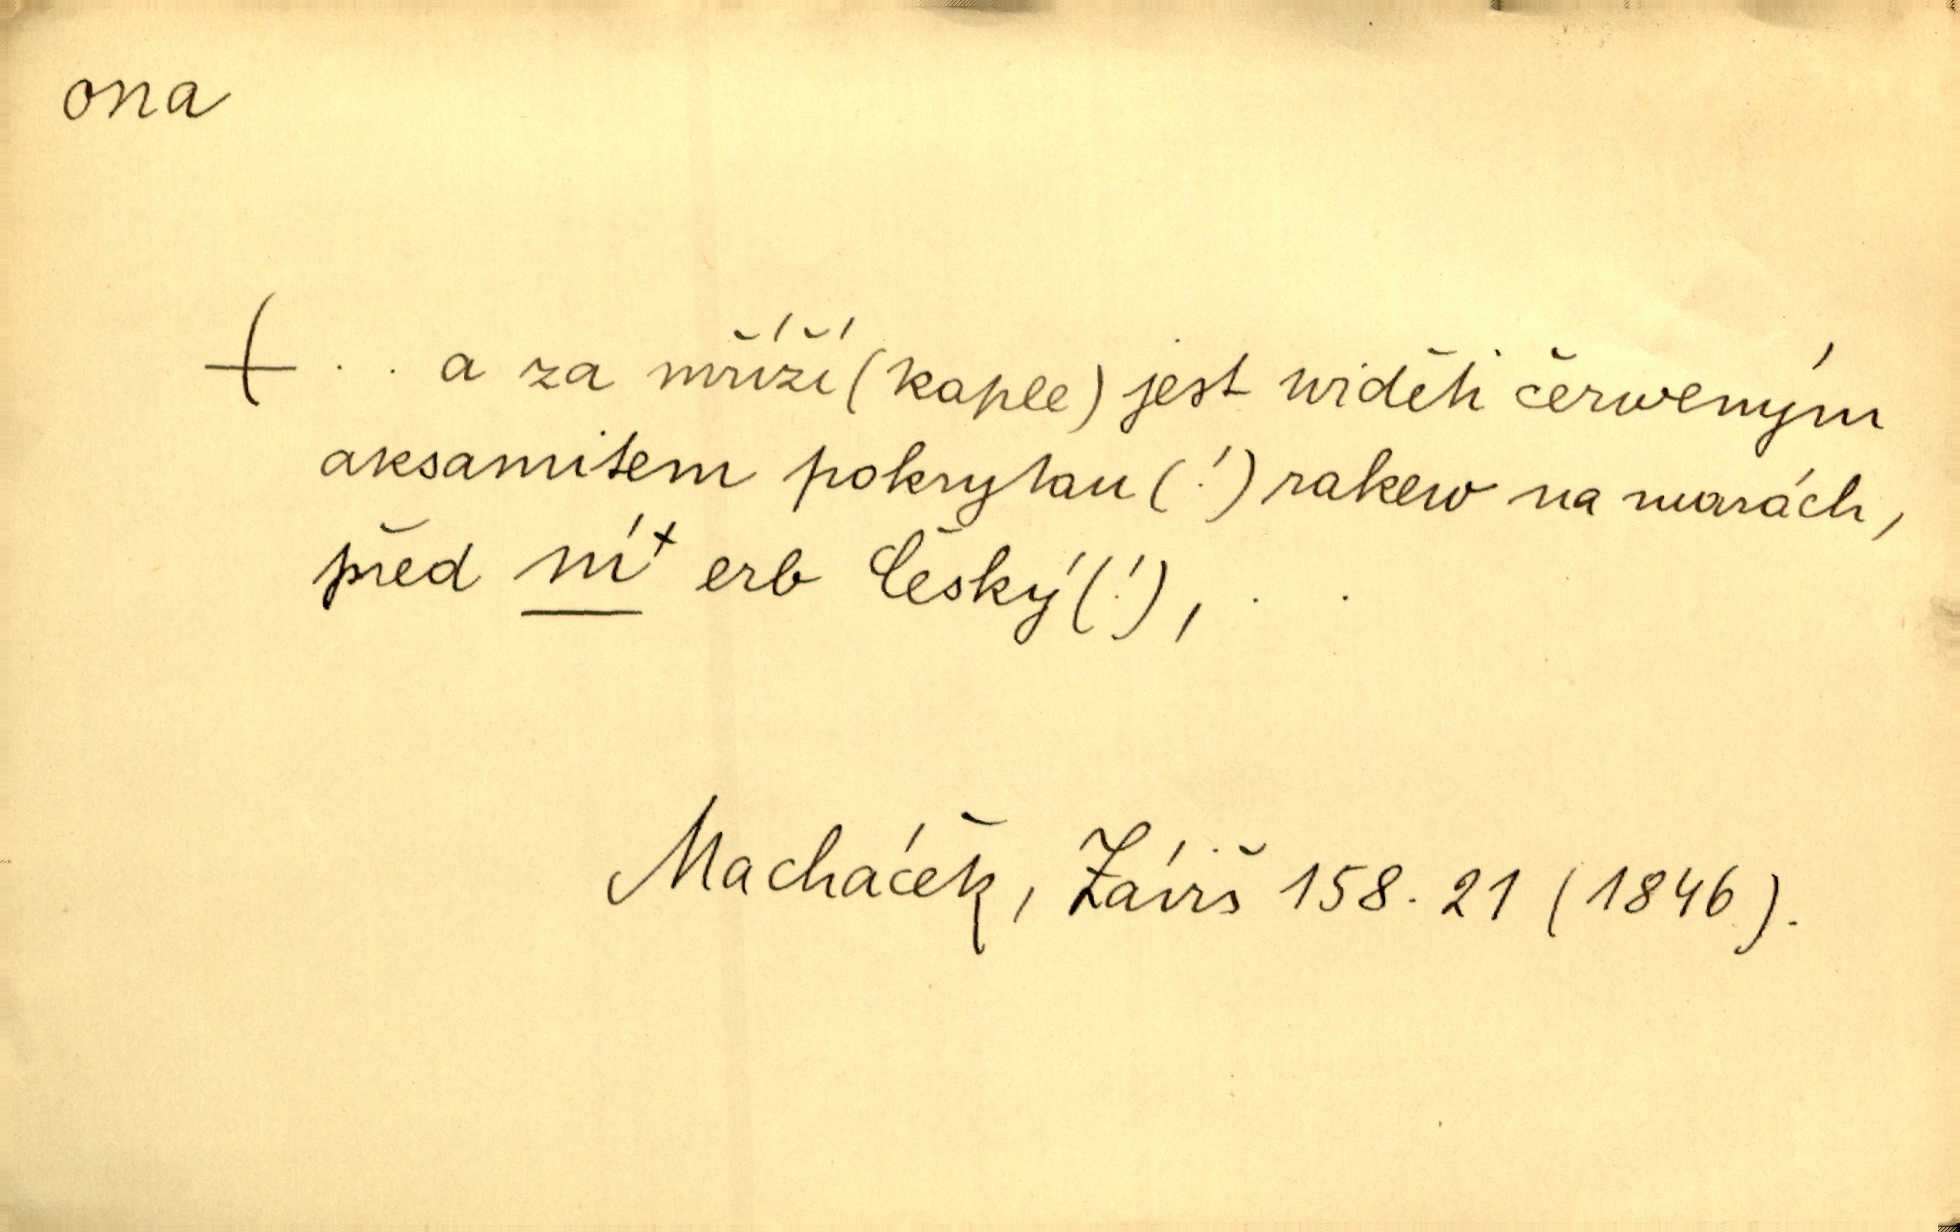 ona
+ . . a za mříží (kaple) jest widěti čerweným
aksamitem pokrytau (!) rakew na marách,
před ní+ erb Český (!), . .
Macháček, Záviš 158. 21 (1846).